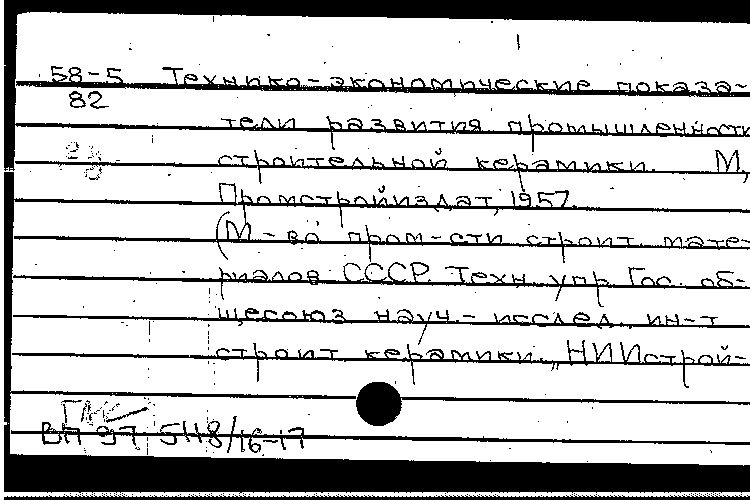 58-5 Технико-экономические показа-
82
тели развития промышленности
строительной керамики. М,
Промстройиздат, 1957.
(М-во пром-сти строит. мате-
риалов СССР. Техн. упр. Гос. об-
щесоюз науч.- исслед. ин-т
строит керамики. "НИИстрой-
ВП 97 5118/16-17